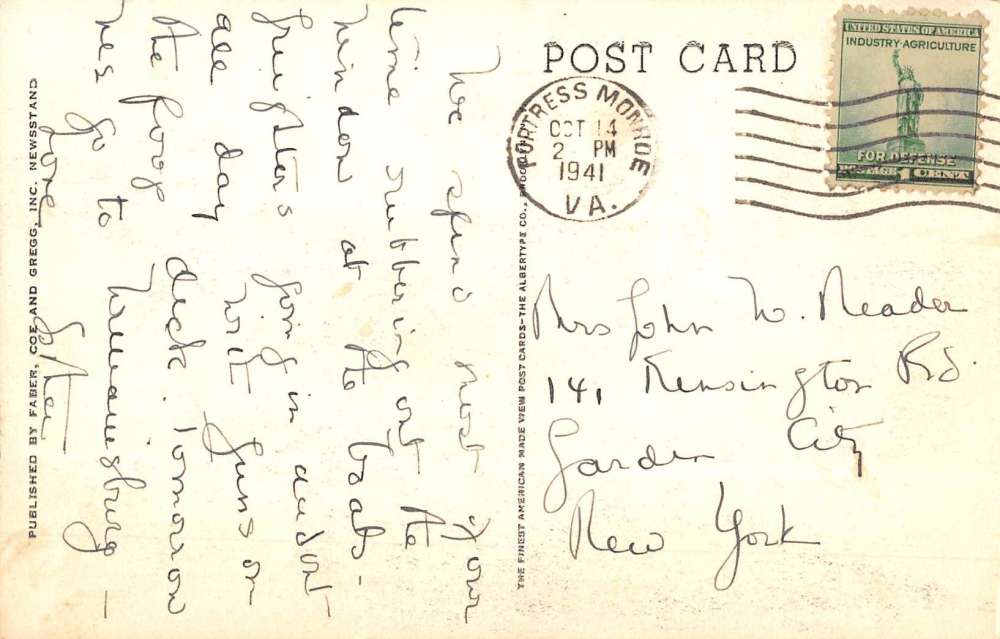 POST CARD
UNITED STATES OF AMERICA
INDUSTRY-AGRICULTURE
FOR DEFENSE
POSTAGE 1 CENT
FORTRESS MONROE
OCT 14
2 PM
1941
VA.
We spend most of our
time rubbering out the
window at the boats -
freighters going in and out
all day with guns on
the poop deck. Tomorrow
we go to Williamsburg —
Love
Mrs John W. Reader
141 Kensington Rd.
Garden City
New York
THE FINEST AMERICAN MADE VIEW POST CARDS-THE ALBERTYPE CO., BROOKLYN
PUBLISHED BY FABER, COE AND GREGG, INC. NEWSSTAND